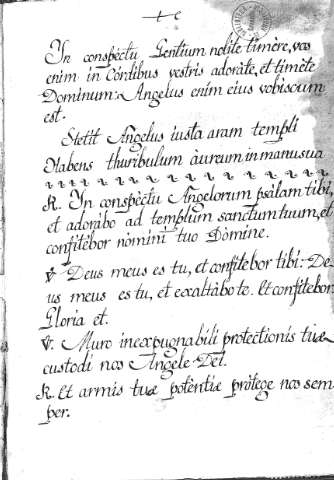 In conspéctu Gentium nolite timère, vos
enim in Córdibus vestris adoráte, et timète
Dominum: Angelus enim eius vobiscum
est.
Stetit Angelus iusta aram templi
Habens thuribulum àureum in manu sua
℟. In conspéctu Angelorum psàlam tibi,
et adorábo ad templum sanctum tuum, et
confitébor nómini tuo Dòmine.
℣. Deus meus es tu, et confitebor tibi: De-
us meus es tu, et exaltàbo te. Et confitebor
Gloria et.
℣. Muro inexpugnabili protectionis tuæ
custodi nos Angele Dei.
℟. Et armis tuæ poténtiæ prótege nos sem
per.